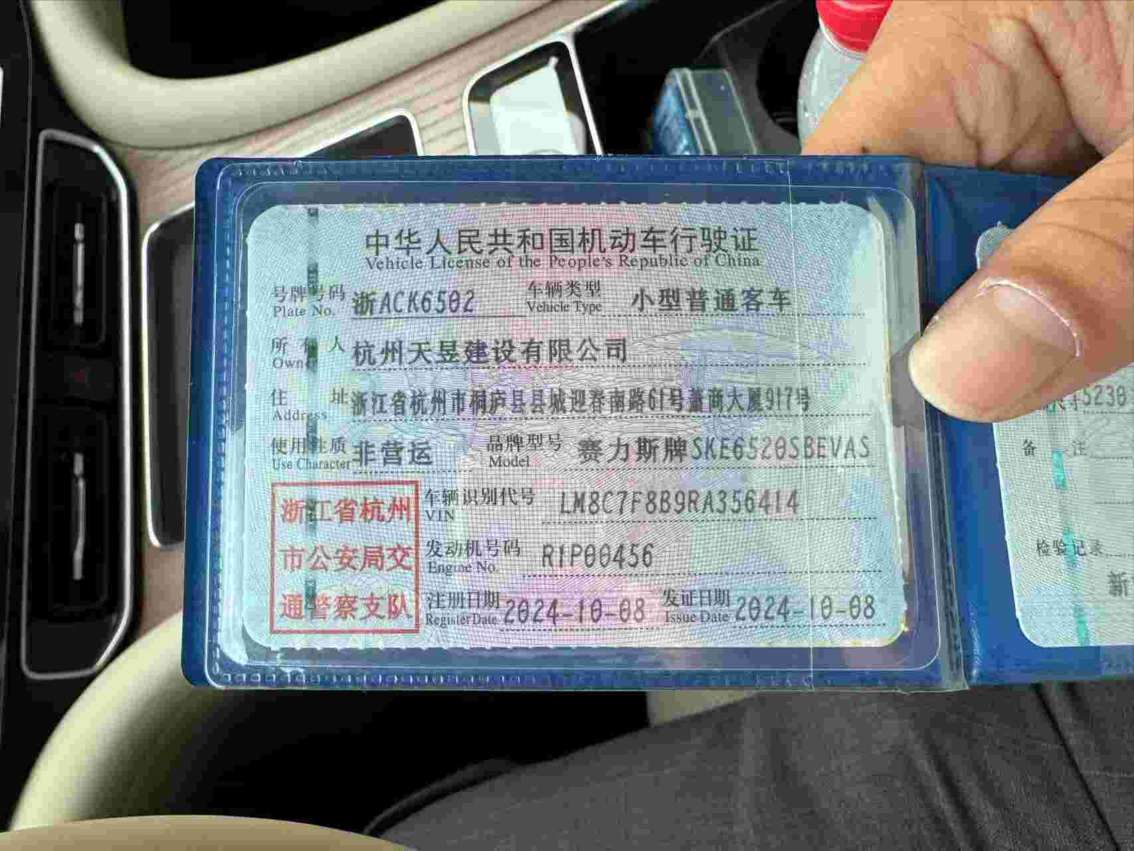 中华人民共和国机动车行驶证
Vehicle License of the People's Republic of China
号牌号码 浙ACK6502 车辆类型 小型普通客车
Plate No. Vehicle Type
所有人 杭州天昱建设有限公司
Owner
住 址 浙江省杭州市桐庐县县城迎春南路61号潇商大厦917号
Address
使用性质 非营运 品牌型号 赛力斯牌SKE6520SBEVAS
Use Character Model
浙江省杭州
市公安局交
通警察支队
车辆识别代号 LM8C7F8B9RA356414
VIN
发动机号码 R1P00456
Engine No.
注册日期 2024-10-08 发证日期 2024-10-08
Register Date Issue Date
5230
备 注
检验记录
新